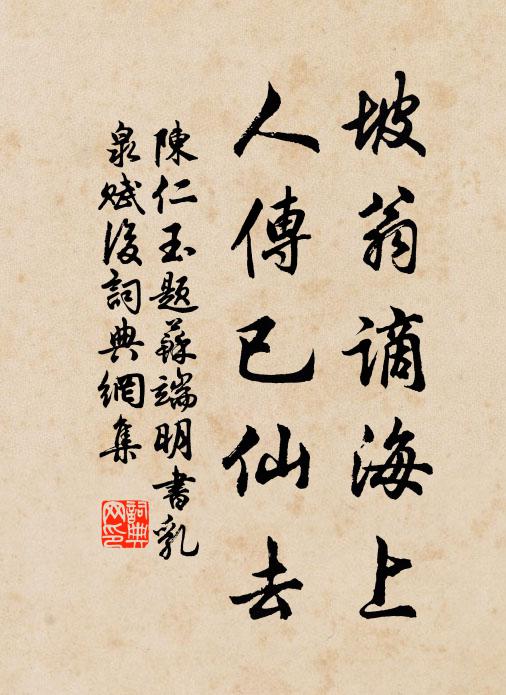 坡翁謫海上
人傳已仙去
陳仁玉題蘇端明書乳
泉賦後詞典網集
詞典网印